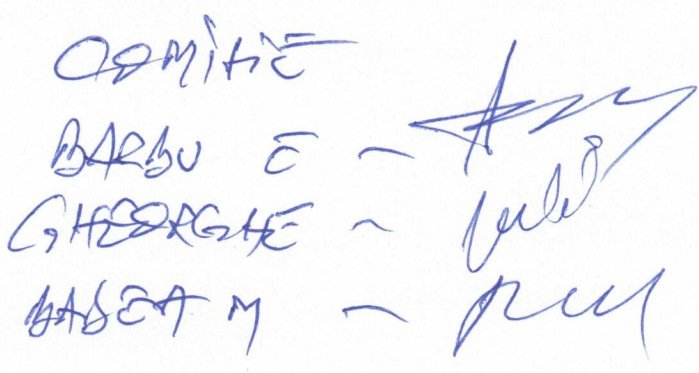 COMISIE
BARBU E -
GHEORGHE -
BADEA M -